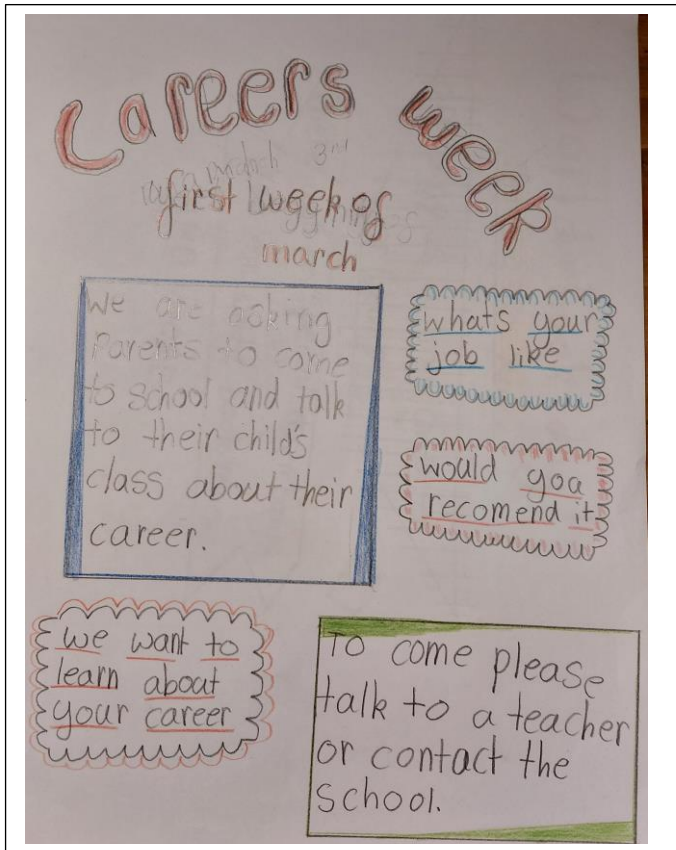 Careers week
first week of
march
We are asking
Parents to come
to school and talk
to their child's
class about their
career.
whats your
job like
would you
recomend it
we want to
learn about
your career
To come please
talk to a teacher
or contact the
school.